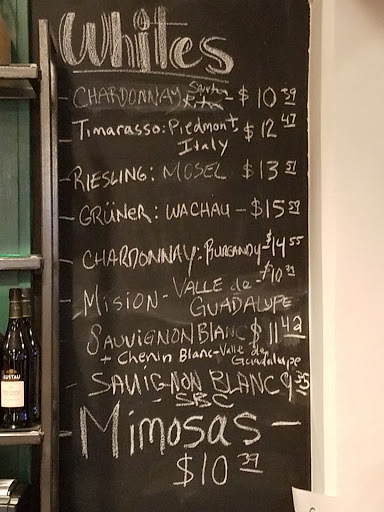 Whites
- CHARDONNAY Santa Rita - $10 39
Timarasso: Piedmont, $12 47
Italy
- RIESLING: MOSEL $13 51
- GRÜNER: WACHAU - $15 59
CHARDONNAY: BURGANDY - $14 55
- MISION - VALLE de - $10 39
GUADALUPE
SAUVIGNON BLANC $11 42
+ Chenin Blanc - Valle de Guadalupe
- SAUVIGNON BLANC 9 35
- SBC
- Mimosas -
$10 39
LUSTAU